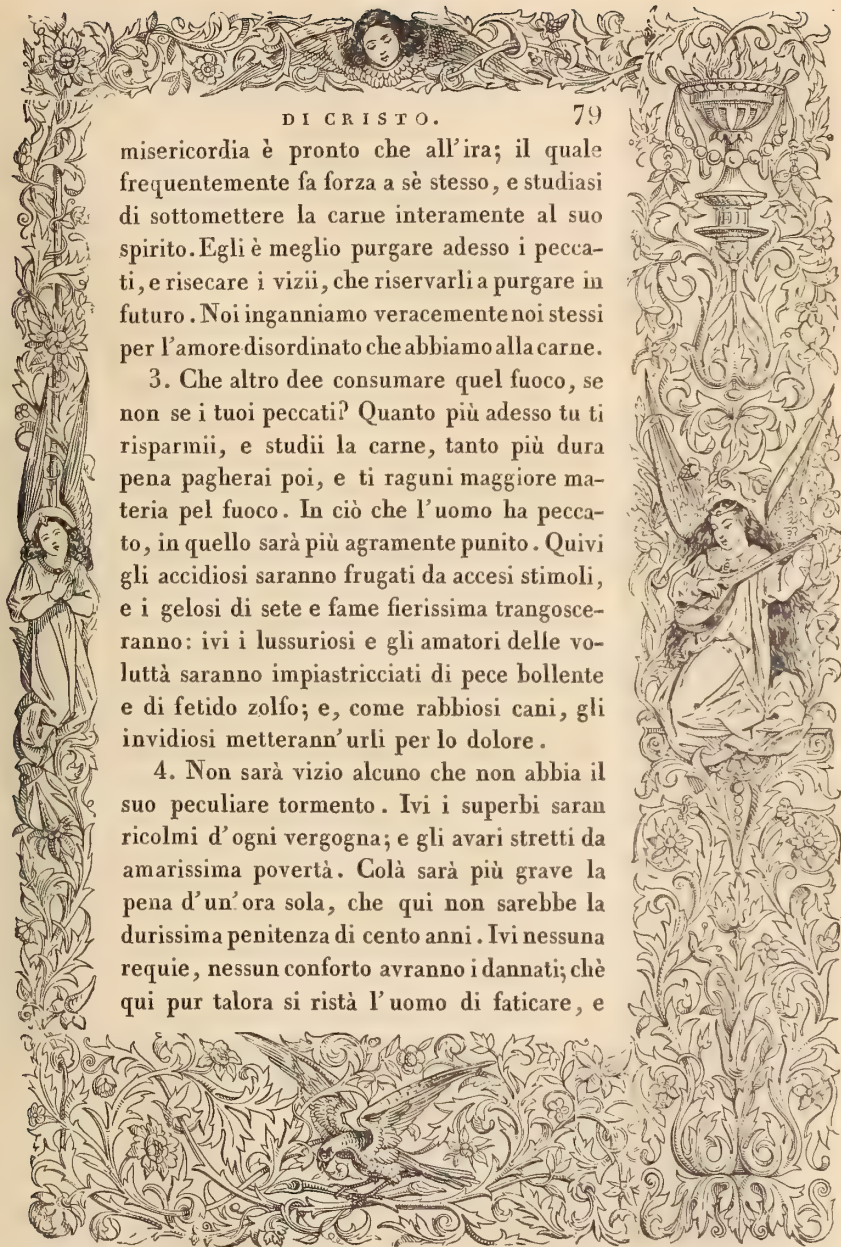 DI CRISTO. 79
misericordia è pronto che all'ira; il quale
frequentemente fa forza a sè stesso, e studiasi
di sottomettere la carne interamente al suo
spirito. Egli è meglio purgare adesso i pecca-
ti, e risecare i vizii, che riservarli a purgare in
futuro. Noi inganniamo veracemente noi stessi
per l'amore disordinato che abbiamo alla carne.
3. Che altro dee consumare quel fuoco, se
non se i tuoi peccati? Quanto più adesso tu ti
risparmii, e studii la carne, tanto più dura
pena pagherai poi, e ti raguni maggiore ma-
teria pel fuoco. In ciò che l'uomo ha pecca-
to, in quello sarà più agramente punito. Quivi
gli accidiosi saranno frugati da accesi stimoli,
e i gelosi di sete e fame fierissima trangosce-
ranno: ivi i lussuriosi e gli amatori delle vo-
luttà saranno impiastricciati di pece bollente
e di fetido zolfo; e, come rabbiosi cani, gli
invidiosi metterann'urli per lo dolore.
4. Non sarà vizio alcuno che non abbia il
suo peculiare tormento. Ivi i superbi saran
ricolmi d'ogni vergogna; e gli avari stretti da
amarissima povertà. Colà sarà più grave la
pena d'un'ora sola, che qui non sarebbe la
durissima penitenza di cento anni. Ivi nessuna
requie, nessun conforto avranno i dannati; chè
qui pur talora si ristà l'uomo di faticare, e